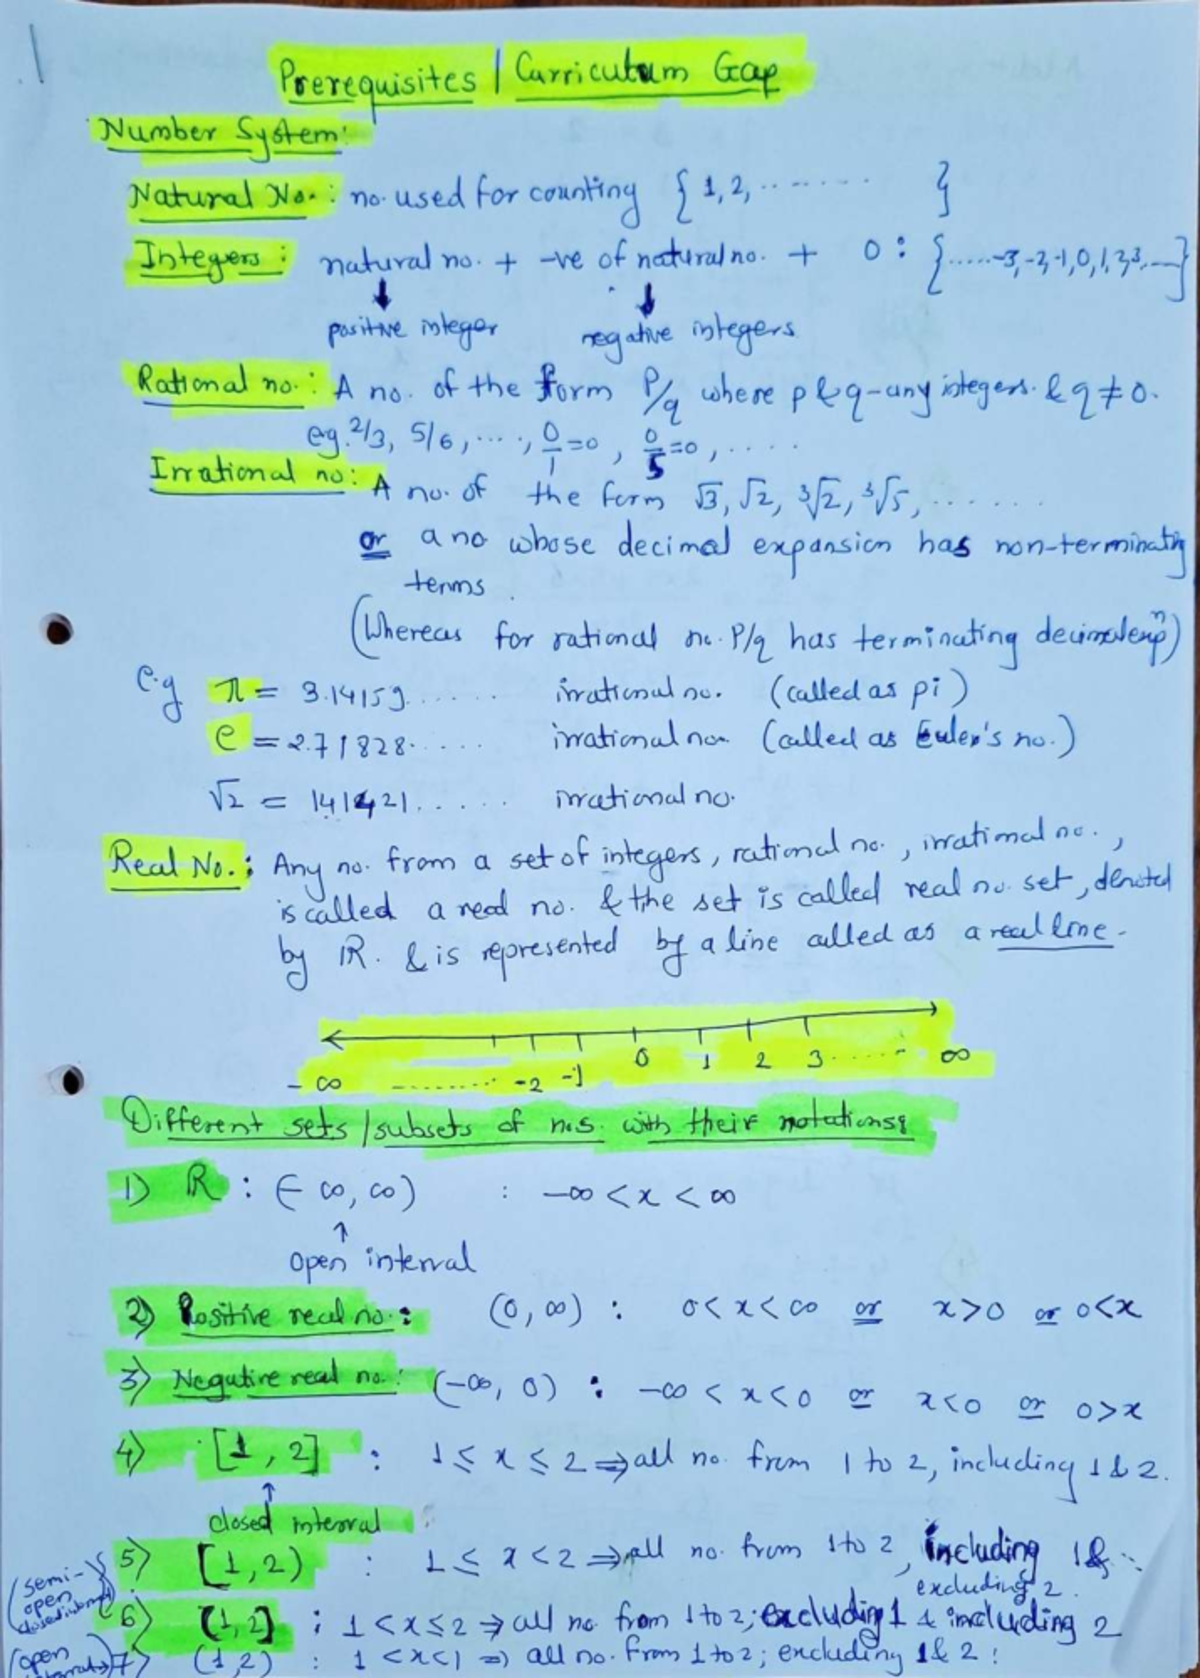 Prerequisites | Curriculum Gap
Number System:
Natural No. : no. used for counting { 1, 2, ........ }
Integers : natural no. + -ve of natural no. + 0 : {.....-3, -2, -1, 0, 1, 2, 3, ...}
↓ ↓
positive integer negative integers
Rational no. : A no. of the form P/q where p & q - any integers. & q ≠ 0.
eg. 2/3, 5/6, ...., 0/1 = 0, 0/5 = 0, .....
Irrational no: A no. of the form √3, √2, ³√2, ³√5, .......
or a no whose decimal expansion has non-terminating
terms.
(Whereas for rational no. P/q has terminating decimal expⁿ)
e.g π = 3.14159..... irrational no. (called as pi)
e = 2.71828..... irrational no. (called as Euler's no.)
√2 = 1.41421..... irrational no.
Real No. : Any no. from a set of integers, rational no., irrational no.,
is called a real no. & the set is called real no. set, denoted
by ℝ. & is represented by a line called as a real line.
-∞ .......... -2 -1 0 1 2 3 ...... ∞
Different sets / subsets of nos. with their notations:
1) ℝ : (-∞, ∞) : -∞ < x < ∞
↑
open interval
2) Positive real no. : (0, ∞) : 0 < x < ∞ or x > 0 or 0 < x
3) Negative real no. : (-∞, 0) : -∞ < x < 0 or x < 0 or 0 > x
4) [1, 2] : 1 ≤ x ≤ 2 ⇒ all no. from 1 to 2, including 1 & 2.
↑
closed interval
5) [1, 2) : 1 ≤ x < 2 ⇒ all no. from 1 to 2, including 1 &
excluding 2.
(semi-
open
6) (1, 2] : 1 < x ≤ 2 ⇒ all no. from 1 to 2; excluding 1 & including 2
(open
7) (1, 2) : 1 < x < 1 ⇒ all no. from 1 to 2; excluding 1 & 2 :